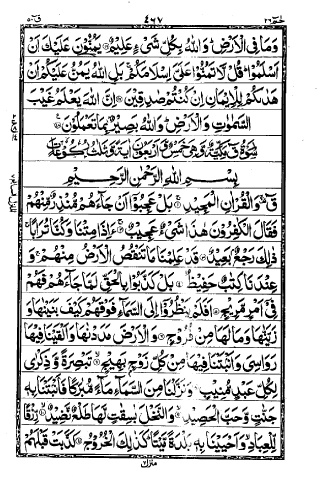 حٰمٓ ٢٦ ٤٦٧ قٓ ٥٠
وَمَا فِی الْاَرْضِ ؕ وَاللّٰهُ بِكُلِّ شَیْءٍ عَلِیْمٌ ۝ یَمُنُّوْنَ عَلَیْكَ اَنْ
اَسْلَمُوْا ؕ قُلْ لَّا تَمُنُّوْا عَلَیَّ اِسْلَامَكُمْ ۚ بَلِ اللّٰهُ یَمُنُّ عَلَیْكُمْ اَنْ
هَدٰىكُمْ لِلْاِیْمَانِ اِنْ كُنْتُمْ صٰدِقِیْنَ ۝ اِنَّ اللّٰهَ یَعْلَمُ غَیْبَ
السَّمٰوٰتِ وَالْاَرْضِ ؕ وَاللّٰهُ بَصِیْرٌۢ بِمَا تَعْمَلُوْنَ ۝
سُوْرَةُ قٓ مَكِّیَّةٌ وَّهِیَ خَمْسٌ وَّاَرْبَعُوْنَ اٰیَةً وَّثَلٰثُ رُكُوْعَاتٍ
بِسْمِ اللّٰهِ الرَّحْمٰنِ الرَّحِیْمِ
قٓ ۚ وَالْقُرْاٰنِ الْمَجِیْدِ ۝ بَلْ عَجِبُوْۤا اَنْ جَآءَهُمْ مُّنْذِرٌ مِّنْهُمْ
فَقَالَ الْكٰفِرُوْنَ هٰذَا شَیْءٌ عَجِیْبٌ ۝ ءَاِذَا مِتْنَا وَكُنَّا تُرَابًا ۚ
ذٰلِكَ رَجْعٌۢ بَعِیْدٌ ۝ قَدْ عَلِمْنَا مَا تَنْقُصُ الْاَرْضُ مِنْهُمْ ۚ وَ
عِنْدَنَا كِتٰبٌ حَفِیْظٌ ۝ بَلْ كَذَّبُوْا بِالْحَقِّ لَمَّا جَآءَهُمْ فَهُمْ
فِیْۤ اَمْرٍ مَّرِیْجٍ ۝ اَفَلَمْ یَنْظُرُوْۤا اِلَی السَّمَآءِ فَوْقَهُمْ كَیْفَ بَنَیْنٰهَا وَ
زَیَّنّٰهَا وَمَا لَهَا مِنْ فُرُوْجٍ ۝ وَالْاَرْضَ مَدَدْنٰهَا وَاَلْقَیْنَا فِیْهَا
رَوَاسِیَ وَاَنْۢبَتْنَا فِیْهَا مِنْ كُلِّ زَوْجٍۭ بَهِیْجٍ ۝ تَبْصِرَةً وَّذِكْرٰی
لِكُلِّ عَبْدٍ مُّنِیْبٍ ۝ وَنَزَّلْنَا مِنَ السَّمَآءِ مَآءً مُّبٰرَكًا فَاَنْۢبَتْنَا بِهٖ
جَنّٰتٍ وَّحَبَّ الْحَصِیْدِ ۝ وَالنَّخْلَ بٰسِقٰتٍ لَّهَا طَلْعٌ نَّضِیْدٌ ۝ رِّزْقًا
لِّلْعِبَادِ ۙ وَاَحْیَیْنَا بِهٖ بَلْدَةً مَّیْتًا ؕ كَذٰلِكَ الْخُرُوْجُ ۝ كَذَّبَتْ قَبْلَهُمْ
منزل ٧